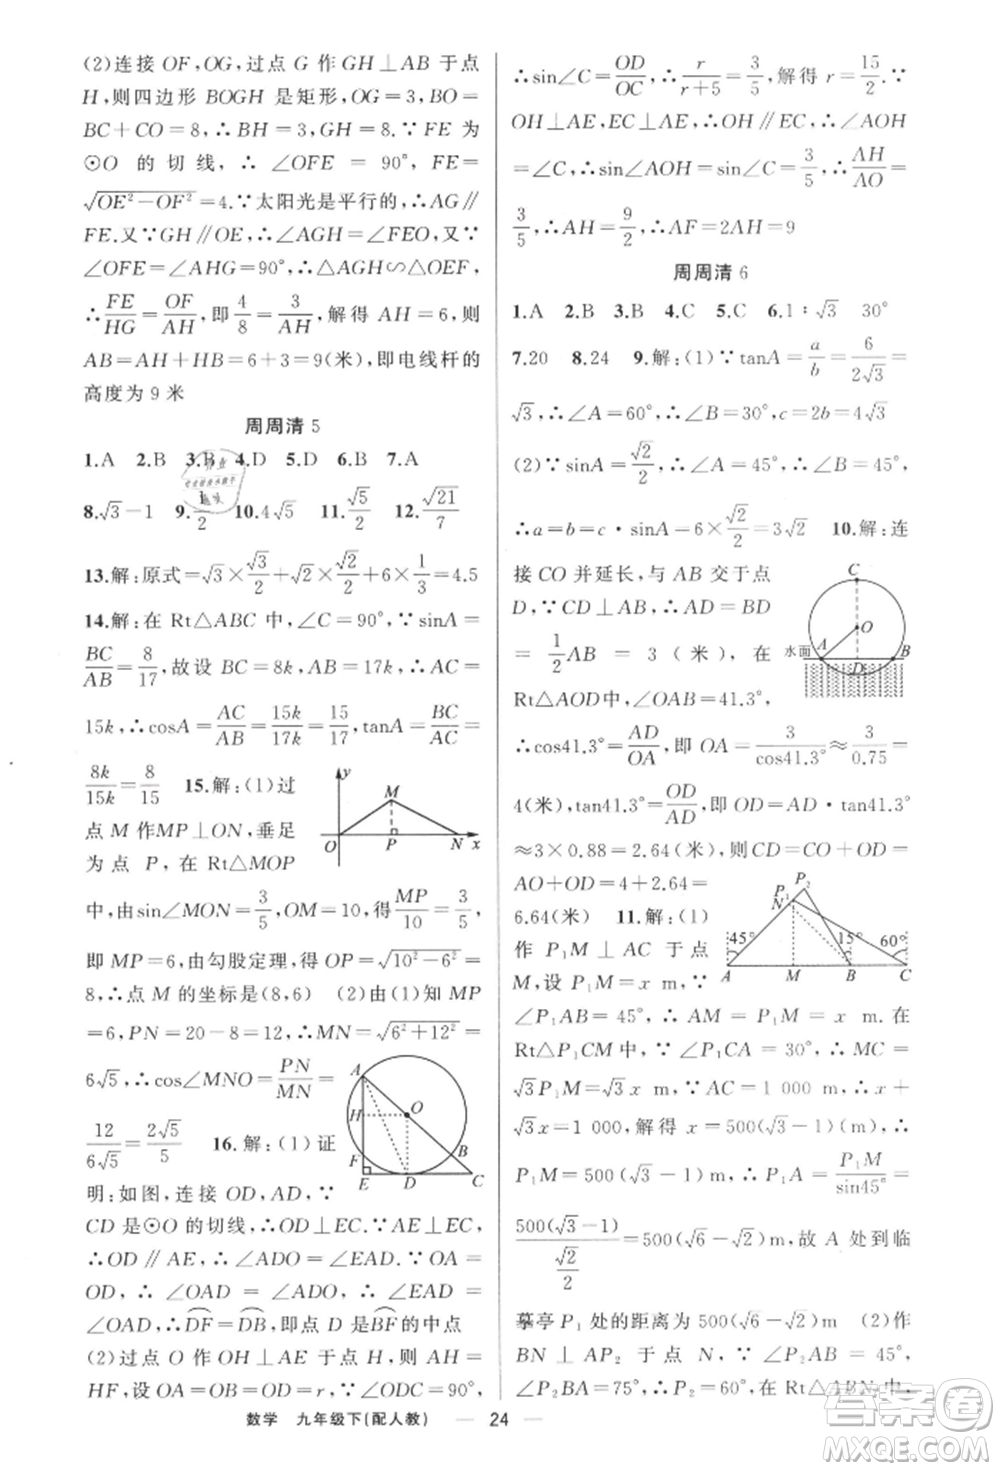 (2)连接 OF,OG,过点 G 作 GH⊥AB 于点
H,则四边形 BOGH 是矩形,OG=3,BO=
BC+CO=8,∴BH=3,GH=8.∵FE 为
⊙O 的切线,∴∠OFE=90°,FE=
√(OE²-OF²)=4.∵太阳光是平行的,∴AG∥
FE.又∵GH∥OE,∴∠AGH=∠FEO,又∵
∠OFE=∠AHG=90°,∴△AGH∽△OEF,
∴FE/HG=OF/AH,即4/8=3/AH,解得 AH=6,则
AB=AH+HB=6+3=9(米),即电线杆的
高度为 9 米
周周清 5
1.A 2.B 3.B 4.D 5.D 6.B 7.A
8.√3-1 9.1/2 10.4√5 11.√5/2 12.√21/7
13.解:原式=√3×√3/2+√2×√2/2+6×1/3=4.5
14.解:在 Rt△ABC 中,∠C=90°,∵sinA=
BC/AB=8/17,故设 BC=8k,AB=17k,∴AC=
15k,∴cosA=AC/AB=15k/17k=15/17,tanA=BC/AC=
8k/15k=8/15 15.解:(1)过
点 M 作MP⊥ON,垂足
为点 P,在 Rt△MOP
y
M
O P N x
中,由sin∠MON=3/5,OM=10,得MP/10=3/5,
即 MP=6,由勾股定理,得 OP=√(10²-6²)=
8,∴点 M 的坐标是(8,6) (2)由(1)知 MP
=6,PN=20-8=12,∴MN=√(6²+12²)=
6√5,∴cos∠MNO=PN/MN=
12/6√5=2√5/5 16.解:(1)证
A
H O
F B
E D C
明:如图,连接 OD,AD,∵
CD 是⊙O 的切线,∴OD⊥EC.∵AE⊥EC,
∴OD∥AE,∴∠ADO=∠EAD.∵OA=
OD,∴∠OAD=∠ADO,∴∠EAD=
∠OAD,∴DF⌒=DB⌒,即点 D 是BF⌒的中点
(2)过点 O 作 OH⊥AE 于点 H,则 AH=
HF,设 OA=OB=OD=r,∵∠ODC=90°,
∴sin∠C=OD/OC,∴r/(r+5)=3/5,解得 r=15/2.∵
OH⊥AE,EC⊥AE,∴OH∥EC,∴∠AOH
=∠C,∴sin∠AOH=sin∠C=3/5,∴AH/AO=
3/5,∴AH=9/2,∴AF=2AH=9
周周清 6
1.A 2.B 3.B 4.C 5.C 6.1∶√3 30°
7.20 8.24 9.解:(1)∵tanA=a/b=6/2√3=
√3,∴∠A=60°,∴∠B=30°,c=2b=4√3
(2)∵sinA=√2/2,∴∠A=45°,∴∠B=45°,
∴a=b=c·sinA=6×√2/2=3√2 10.解:连
接 CO 并延长,与 AB 交于点
D,∵CD⊥AB,∴AD=BD
=1/2AB=3(米),在
Rt△AOD中,∠OAB=41.3°,
C
O
水面 A D B
∴cos41.3°=AD/OA,即 OA=3/cos41.3°≈3/0.75=
4(米),tan41.3°=OD/AD,即OD=AD·tan41.3°
≈3×0.88=2.64(米),则CD=CO+OD=
AO+OD=4+2.64=
6.64(米) 11.解:(1)
作 P₁M⊥AC 于点
M,设 P₁M=x m,∵
P₂
P₁
N
45° 15° 60°
A M B C
∠P₁AB=45°,∴AM=P₁M=x m.在
Rt△P₁CM 中,∵∠P₁CA=30°,∴MC=
√3P₁M=√3x m,∵AC=1 000 m,∴x+
√3x=1 000,解得 x=500(√3-1)(m),∴
P₁M=500(√3-1)m,∴P₁A=P₁M/sin45°=
500(√3-1)/(√2/2)=500(√6-√2)m,故 A 处到临
摹亭 P₁ 处的距离为 500(√6-√2)m (2)作
BN⊥AP₂ 于点 N,∵∠A=45°,
∠P₂BC=75°,∴∠P₂=30°,在 Rt△ABN 中,
数学 九年级下(配人教) — 24 —
答案圈
MXQE.COM